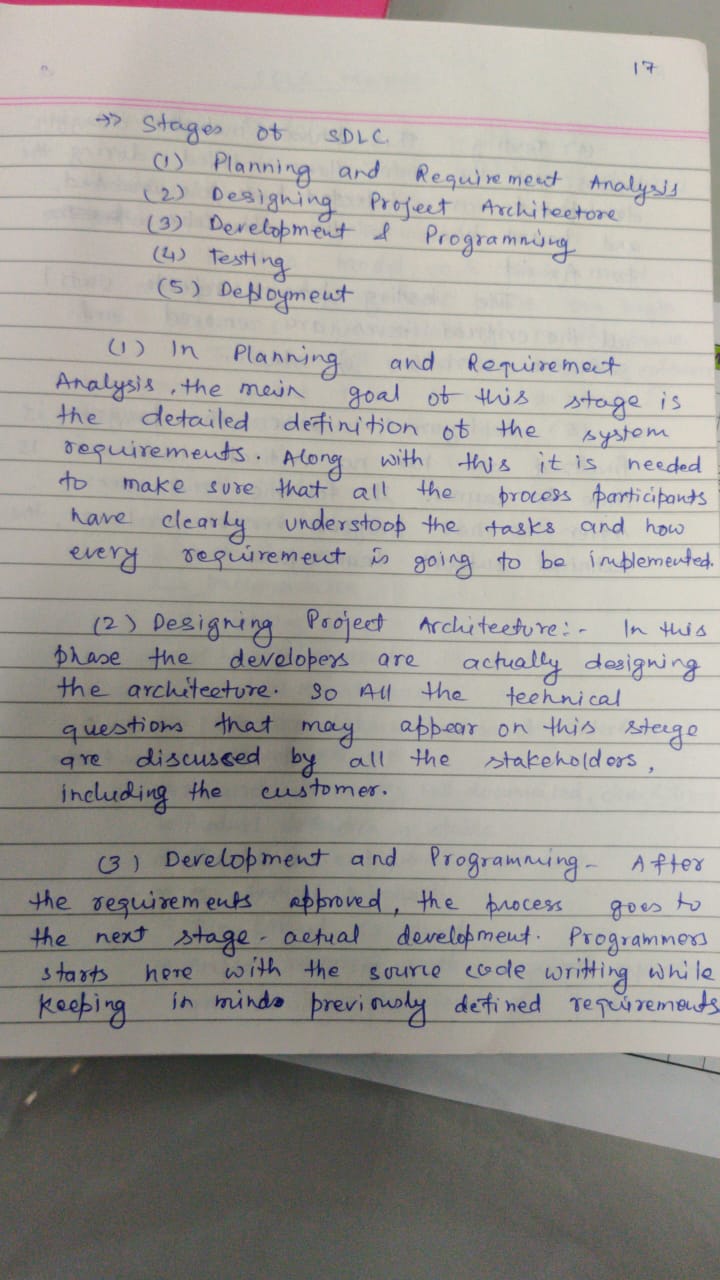 17
->> Stages of SDLC.
(1) Planning and Requirement Analysis
(2) Designing Project Architectore
(3) Development & Programming
(4) Testing
(5) Deployment
(1) In Planning and Requirement
Analysis, the main goal of this stage is
the detailed definition of the system
requirements. Along with this it is needed
to make sure that all the process participants
have clearly understoop the tasks and how
every requirement is going to be implemented.
(2) Designing Project Architecture:- In this
phase the developers are actually designing
the architecture. So All the technical
questions that may appear on this steege
are discussed by all the stakeholders,
including the customer.
(3) Development and Programming - After
the requirements approved, the process goes to
the next stage - actual development. Programmers
starts here with the source code writting while
keeping in minds previously defined requirements